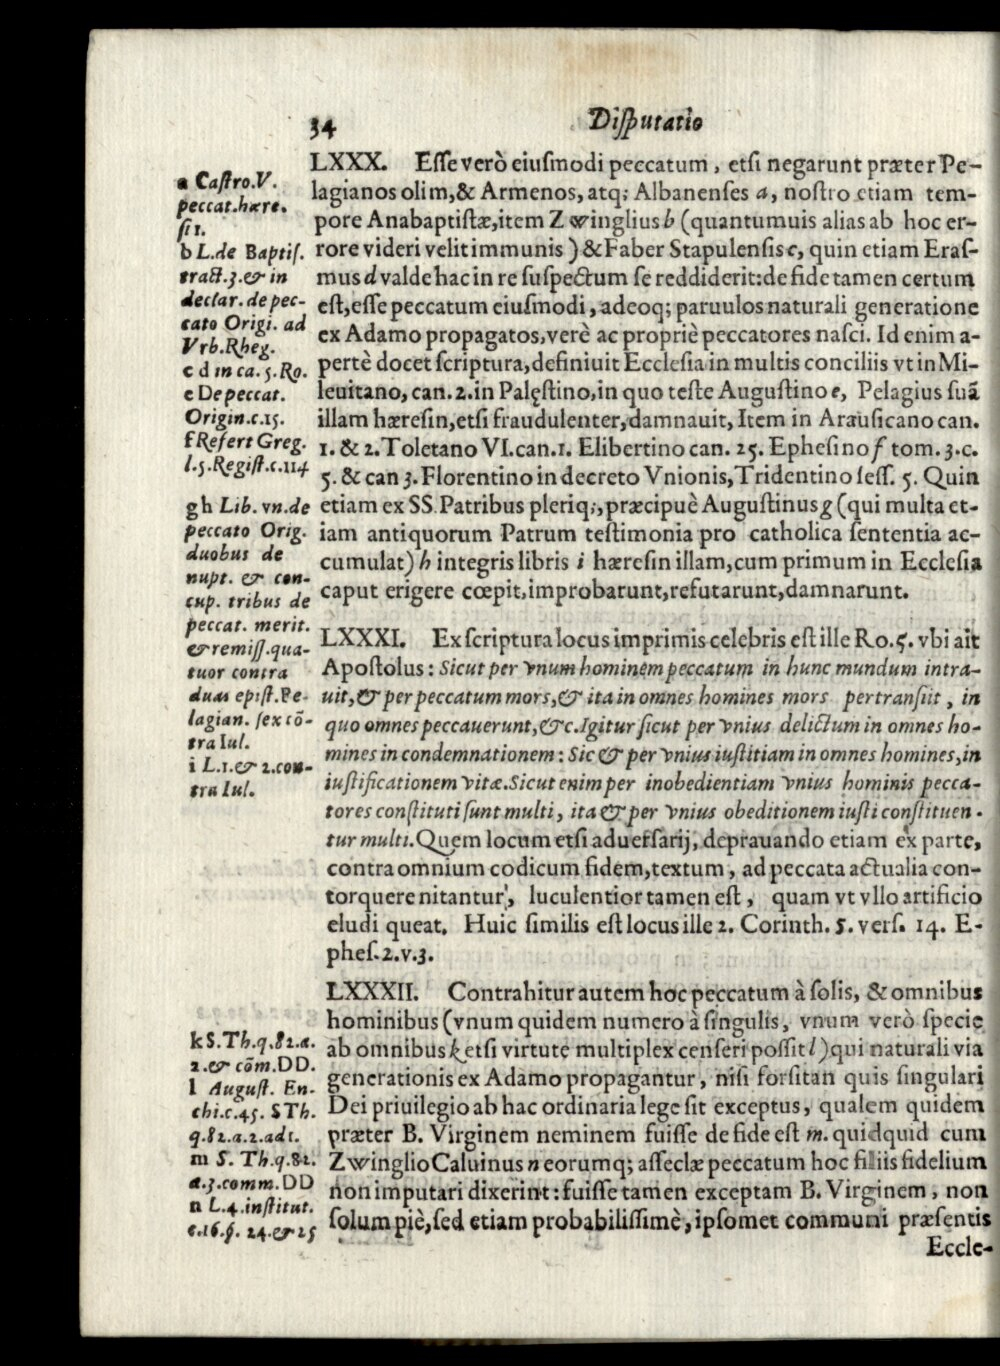 34 Diſputatio
LXXX. Eſſe verò eiuſmodi peccatum, etſi negarunt præter Pe-
lagianos olim,& Armenos, atq; Albanenſes a, noſtro etiam tem-
pore Anabaptiſtæ,item Zwinglius b (quantumuis alias ab hoc er-
rore videri velit immunis) & Faber Stapulenſis c, quin etiam Eraſ-
mus d valde hac in re ſuſpectum ſe reddiderit: de fide tamen certum
eſt,eſſe peccatum eiuſmodi, adeoq; paruulos naturali generatione
ex Adamo propagatos,verè ac propriè peccatores naſci. Id enim a-
pertè docet ſcriptura,definiuit Eccleſia in multis conciliis vt in Mi-
leuitano, can. 2. in Palęſtino,in quo teſte Auguſtino e, Pelagius ſuã
illam hæreſin,etſi fraudulenter,damnauit, Item in Arauſicano can.
1. & 2. Toletano VI.can.1. Elibertino can. 25. Epheſino f tom. 3. c.
5. & can 3. Florentino in decreto Vnionis, Tridentino ſeſſ. 5. Quin
etiam ex SS. Patribus pleriq;, præcipuè Auguſtinus g (qui multa et-
iam antiquorum Patrum teſtimonia pro catholica ſententia ac-
cumulat) h integris libris i hæreſin illam,cum primum in Eccleſia
caput erigere cœpit,improbarunt,refutarunt,damnarunt.
LXXXI. Ex ſcriptura locus imprimis celebris eſt ille Ro.5. vbi ait
Apoſtolus: Sicut per vnum hominem peccatum in hunc mundum intra-
uit,& per peccatum mors,& ita in omnes homines mors pertranſiit, in
quo omnes peccauerunt,&c.Igitur ſicut per vnius delictum in omnes ho-
mines in condemnationem: Sic & per vnius iuſtitiam in omnes homines,in
iuſtificationem vitæ.Sicut enim per inobedientiam vnius hominis pecca-
tores conſtituti ſunt multi, ita & per vnius obeditionem iuſti conſtituen-
tur multi. Quem locum etſi aduerſarij, deprauando etiam ex parte,
contra omnium codicum fidem,textum, ad peccata actualia con-
torquere nitantur, luculentior tamen eſt, quam vt vllo artificio
eludi queat. Huic ſimilis eſt locus ille 2. Corinth. 5. verſ. 14. E-
pheſ. 2. v. 3.
LXXXII. Contrahitur autem hoc peccatum à ſolis, & omnibus
hominibus (vnum quidem numero à ſingulis, vnum verò ſpecie
ab omnibus k etſi virtute multiplex cenſeri poſſit l) qui naturali via
generationis ex Adamo propagantur, niſi forſitan quis ſingulari
Dei priuilegio ab hac ordinaria lege ſit exceptus, qualem quidem
præter B. Virginem neminem fuiſſe de fide eſt m. quidquid cum
Zwinglio Caluinus n eorumq; aſſeclæ peccatum hoc filiis fidelium
non imputari dixerint: fuiſſe tamen exceptam B. Virginem, non
ſolum piè,ſed etiam probabiliſſimè, ipſomet communi præſentis
Eccle-
a Caſtro. V.
peccat.hære.
ſi 1.
b L.de Baptiſ.
tract.3.& in
declar. de pec-
cato Origi. ad
Vrb.Rheg.
c d in ca. 5. Ro.
e De peccat.
Origin.c.15.
f Refert Greg.
l.5.Regiſt.c.114
g h Lib. vn.de
peccato Orig.
duobus de
nupt. & con-
cup. tribus de
peccat. merit.
& remiſſ.qua-
tuor contra
duas epiſt.Pe-
lagian. ſex cõ-
tra Iul.
i L.1.& 2.con-
tra Iul.
k S.Th.q.82.a.
2.& cõm.DD.
l Auguſt. En-
chi.c.45. STh.
q.82.a.2.ad1.
m S. Th.q.81.
a.3.comm.DD
n L.4.inſtitut.
c.16.§. 24.& 25